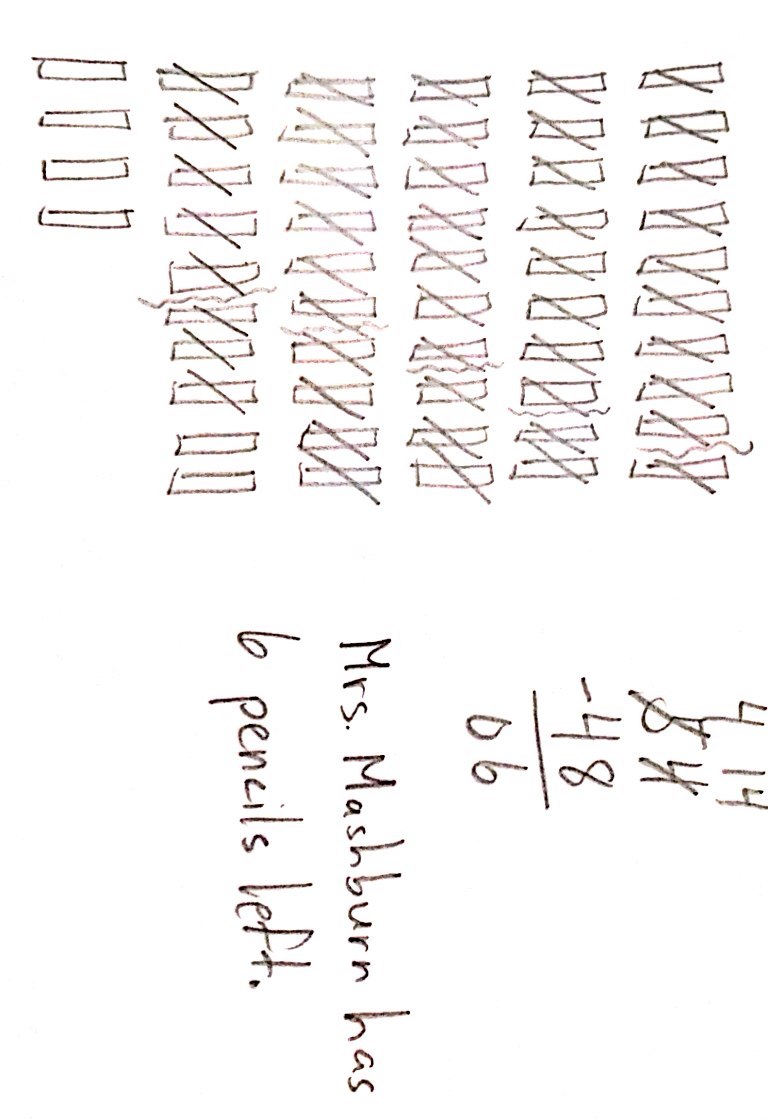 4 14
5 4
-48
06
Mrs. Mashburn has
6 pencils left.